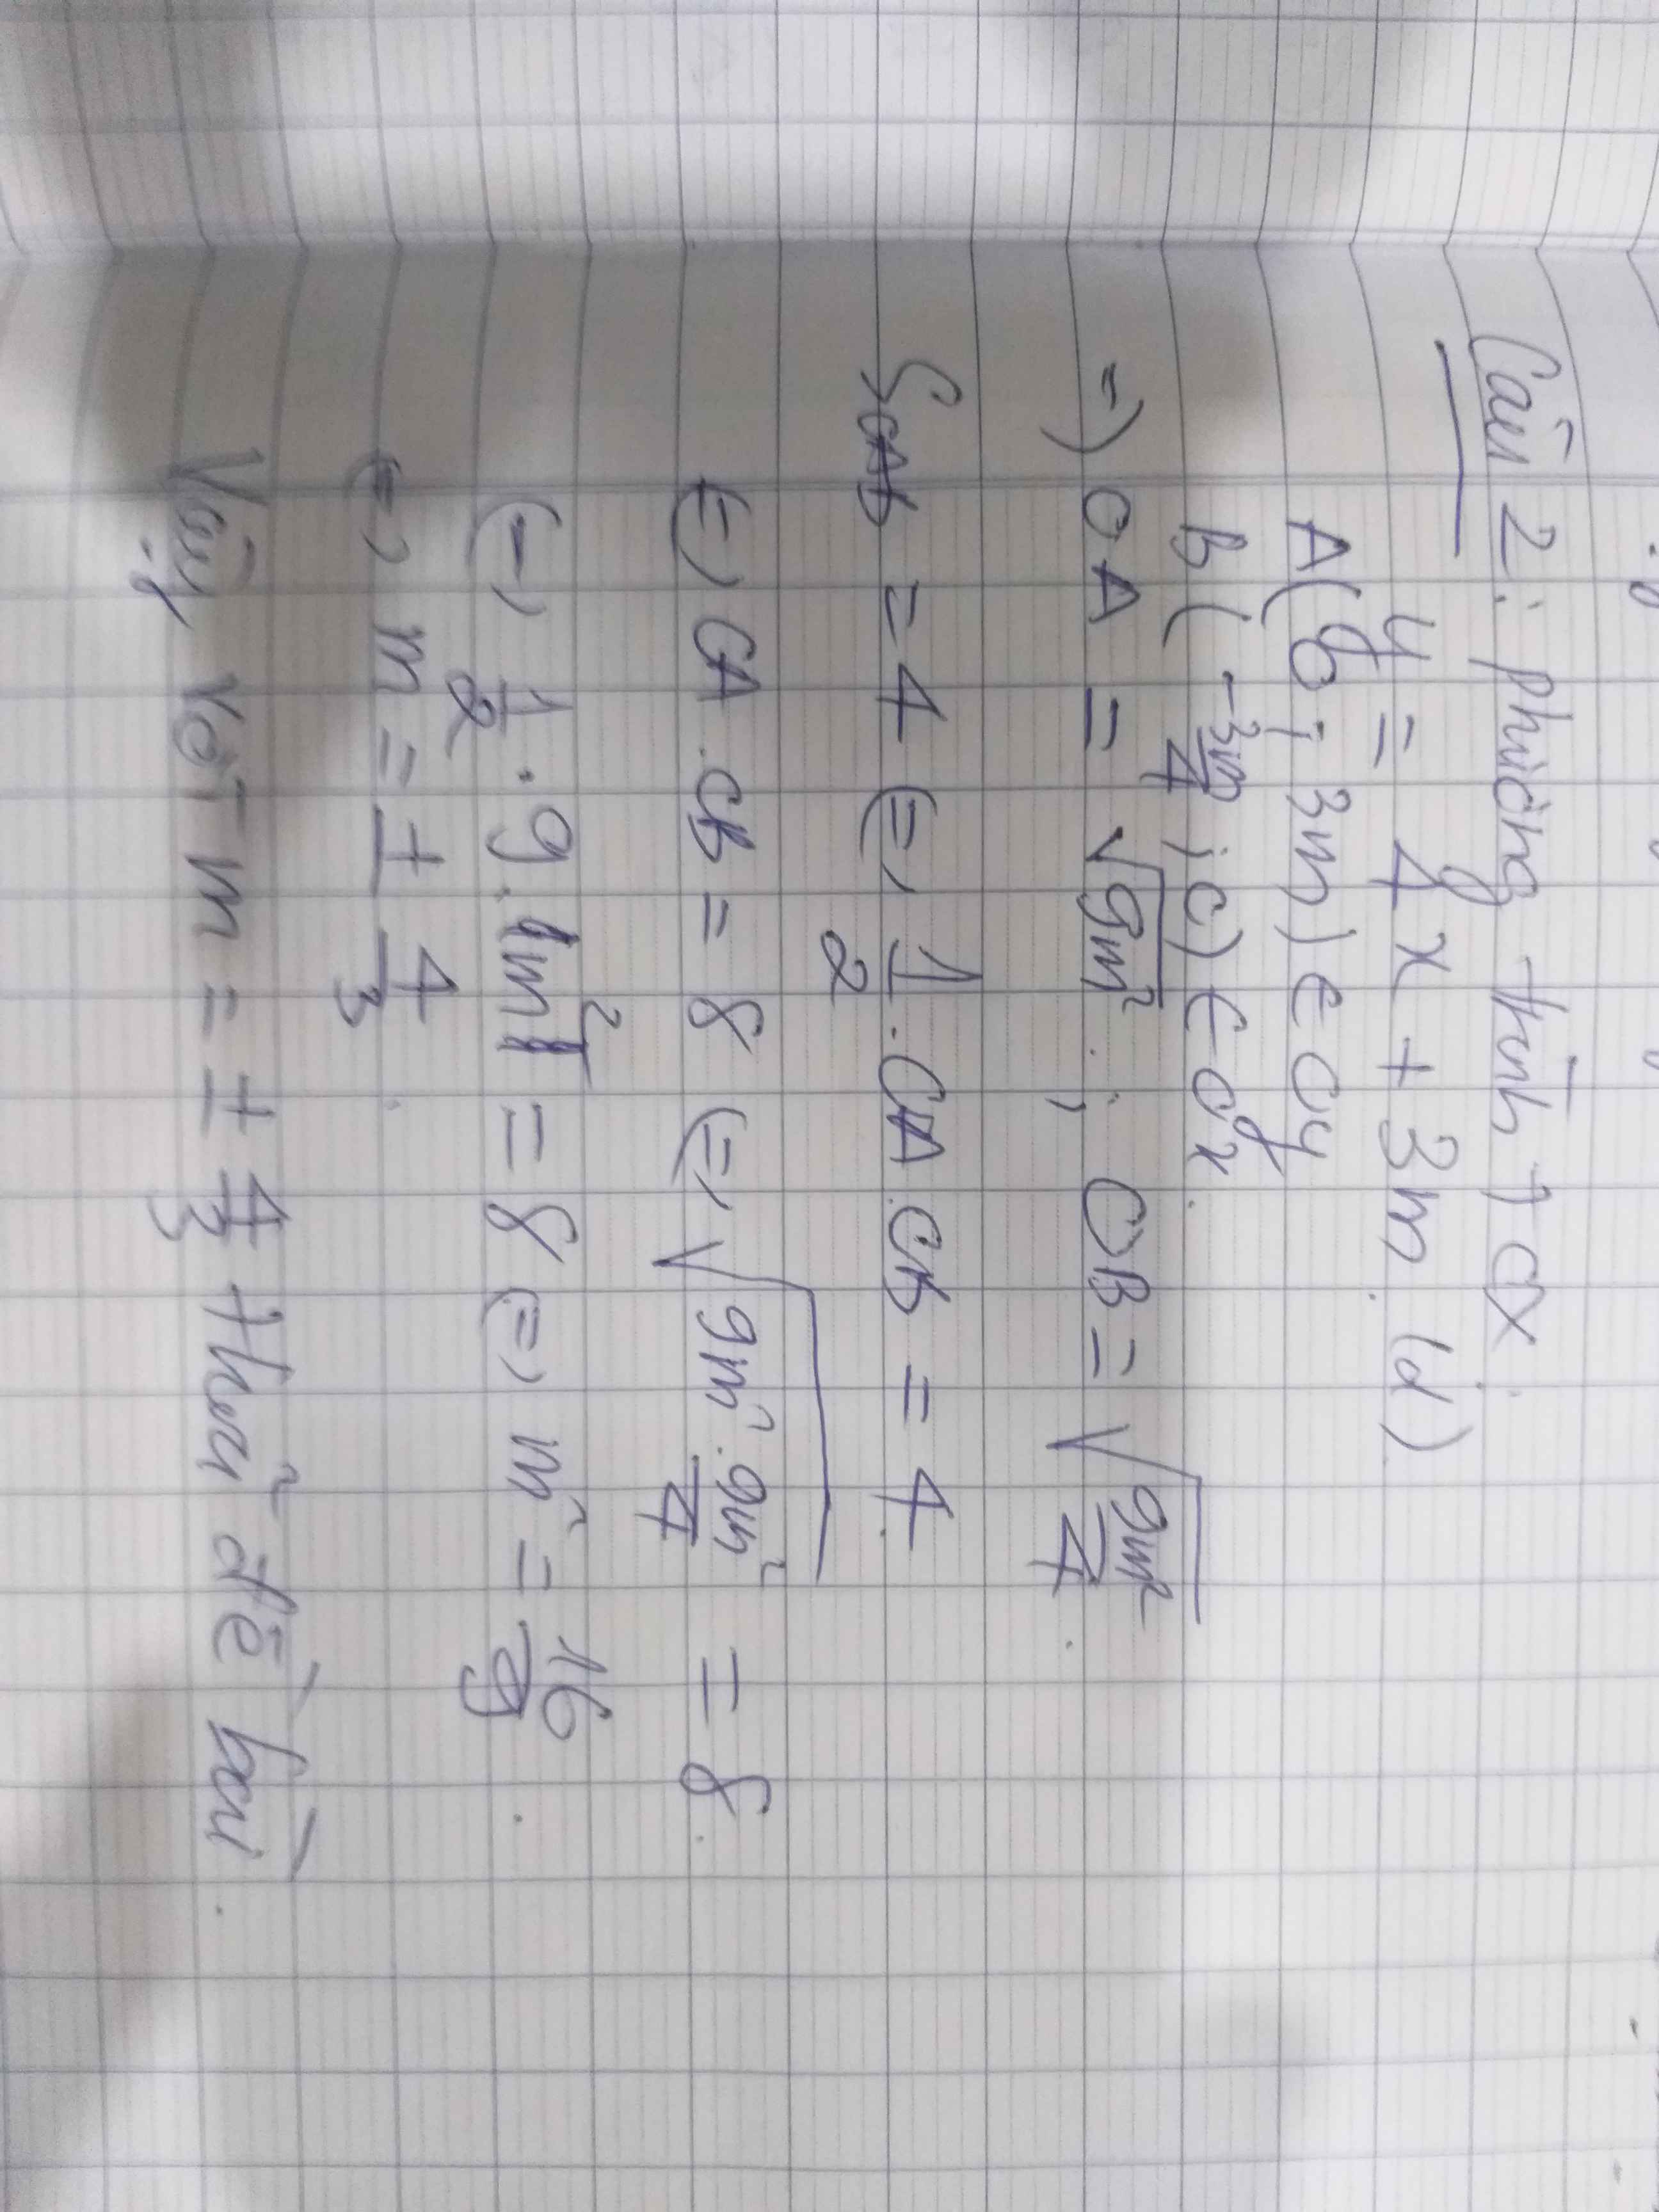 Câu 2: phương trình ⊥ OX.
y = 4x + 3m. (d)
A(0; 3m) ∈ oy
B(-3m/4; 0) ∈ ox.
=) OA = √9m²; OB = √(9m²/4).
SOAB = 4 (=) 1/2 . OA . OB = 4
(=) OA . OB = 8 (=) √(9m² . 9m²/4) = 8.
(=) 1/2 . 9 . |m|² = 8 (=) m² = 16/9.
(=) m = ± 4/3.
Vậy với m = ± 4/3 thoả đề bài.